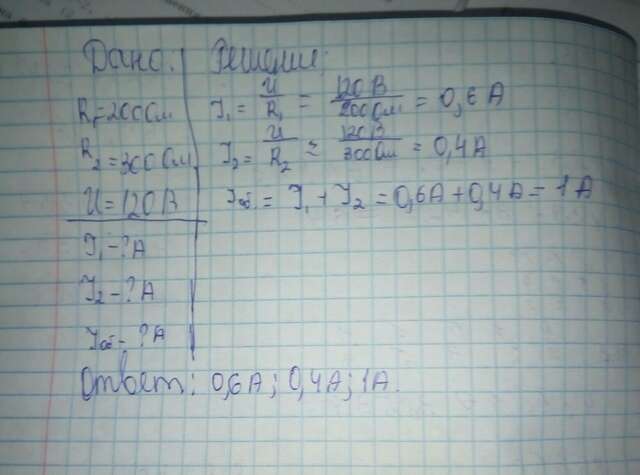 Дано: Решение:
R₁=200Ом
R₂=300Ом
U=120В
I₁-?А
I₂-?А
Iоб-?А
I₁ = U/R₁ = 120В/200Ом = 0,6А
I₂ = U/R₂ = 120В/300Ом = 0,4А
Iоб. = I₁ + I₂ = 0,6А+0,4А=1А
Ответ: 0,6А; 0,4А; 1А.